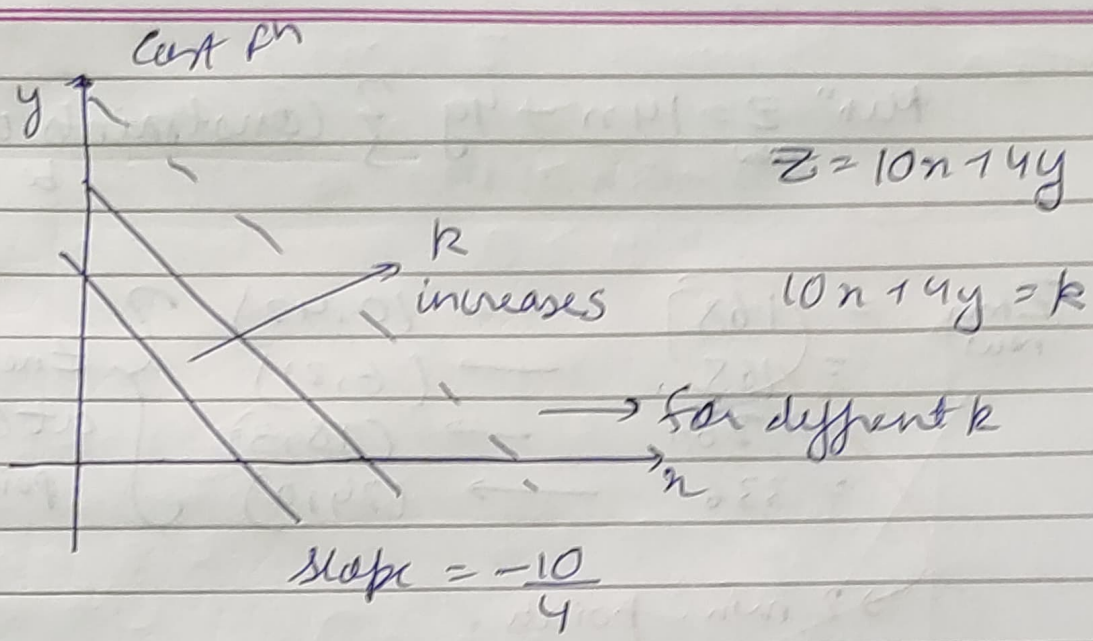 Cost fn
y
z = 10x + 4y
k
increases
10x + 4y = k
→ for diffrent k
x
slope = -10/4